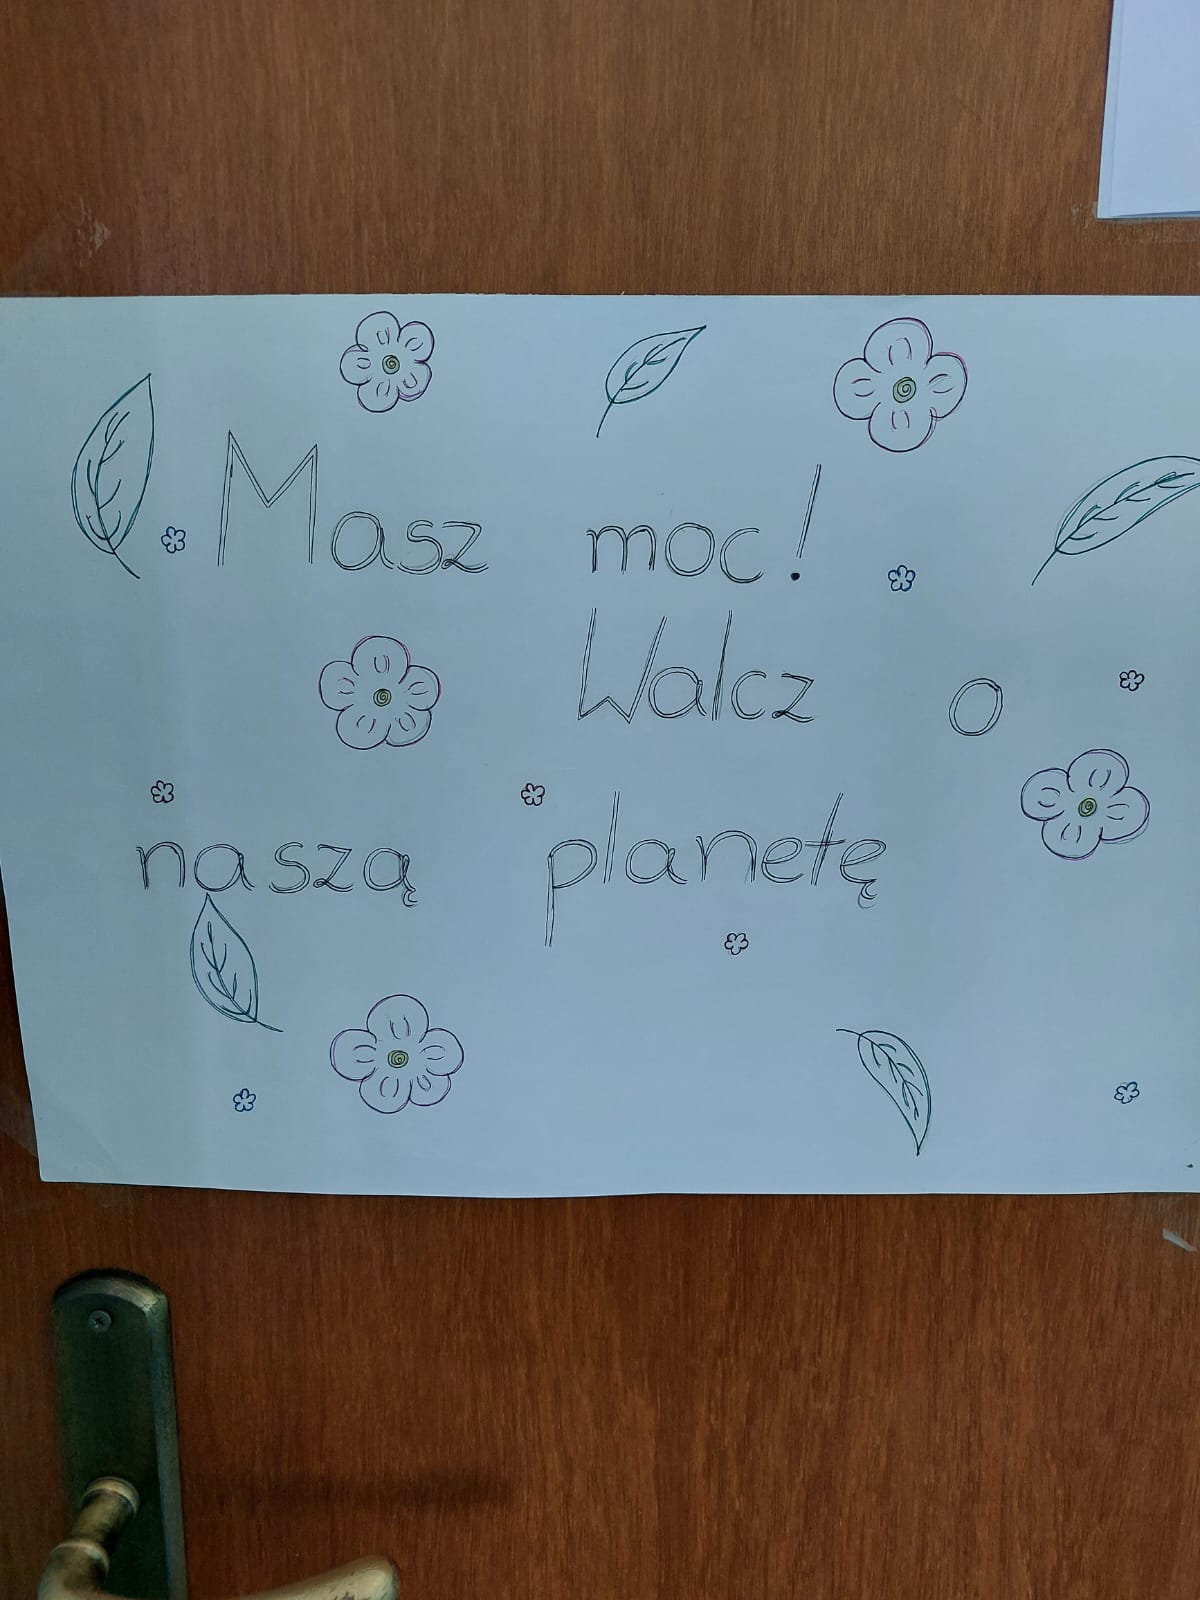 Masz moc!
Walcz o
naszą planetę